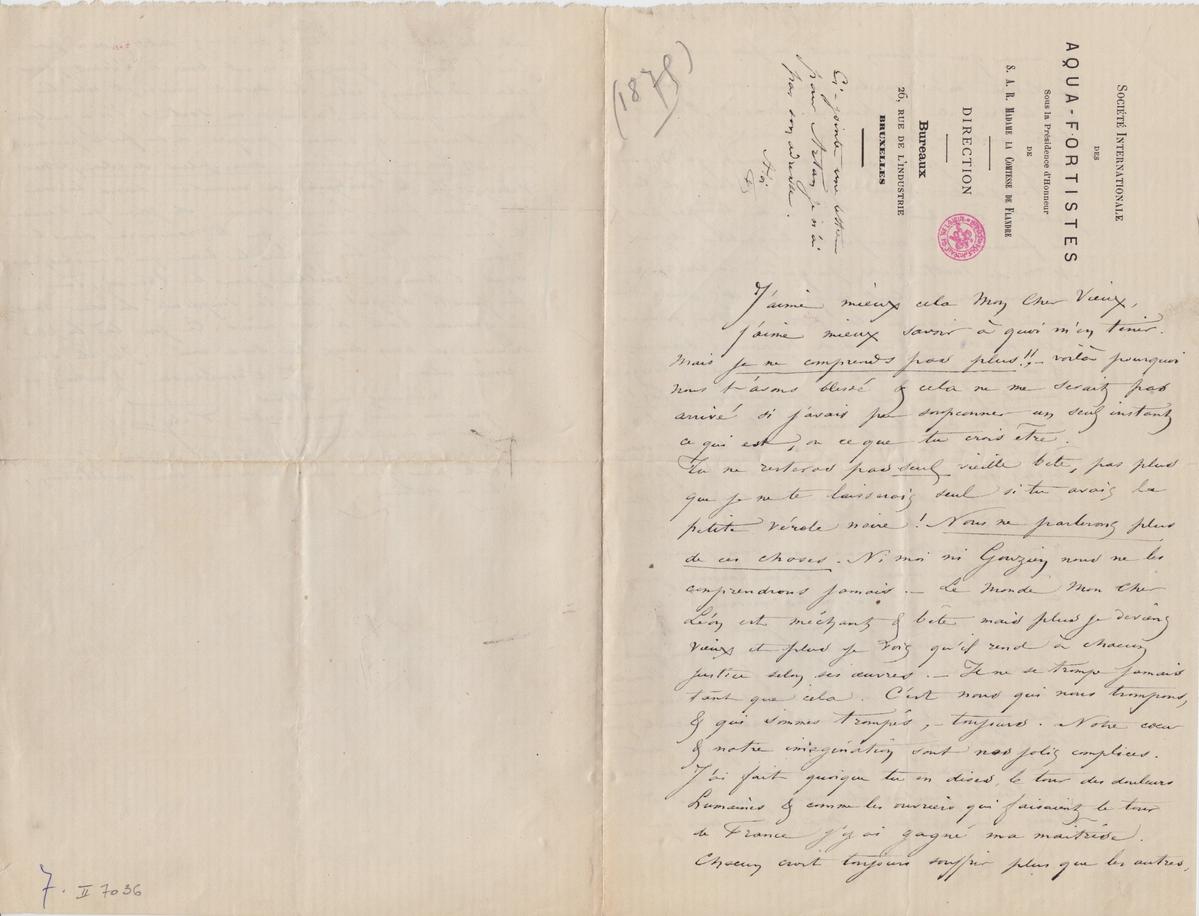 SOCIÉTÉ INTERNATIONALE
DES
AQUA-FORTISTES
Sous la Présidence d'Honneur
DE
S. A. R. MADAME LA COMTESSE DE FLANDRE
DIRECTION
Bureaux
26, RUE DE L'INDUSTRIE
BRUXELLES
Ci-jointe une lettre
pour Artan je n'ai
pas son adresse.
(1875)
J'aime mieux cela Mon Cher Vieux,
j'aime mieux savoir à quoi m'en tenir.
Mais je ne comprends pas plus!! – voilà pourquoi
nous t'avons blessé & cela ne me serait pas
arrivé si j'avais pu soupçonner un seul instant
ce qui est, ou ce que tu crois être.
Tu ne resteras pas seul vieille bête, pas plus
que je ne te laisserais seul si tu avais la
petite vérole noire ! Nous ne parlerons plus
de ces choses. Ni moi ni Gouzien nous ne les
comprendrons jamais. – Le Monde Mon Cher
Léon est méchant & bête mais plus je deviens
vieux et plus je vois qu'il rend à chacun
justice selon ses œuvres. – Il ne se trompe jamais
tant que cela. C'est nous qui nous trompons,
& qui sommes trompés, – toujours. Notre cœur
& notre imagination sont nos jolis complices.
J'ai fait quoique tu en dises, le tour des douleurs
humaines & comme les ouvriers qui faisaient le tour
de France j'y ai gagné ma maîtrise.
Chacun croit toujours souffrir plus que les autres,
7. II 7036